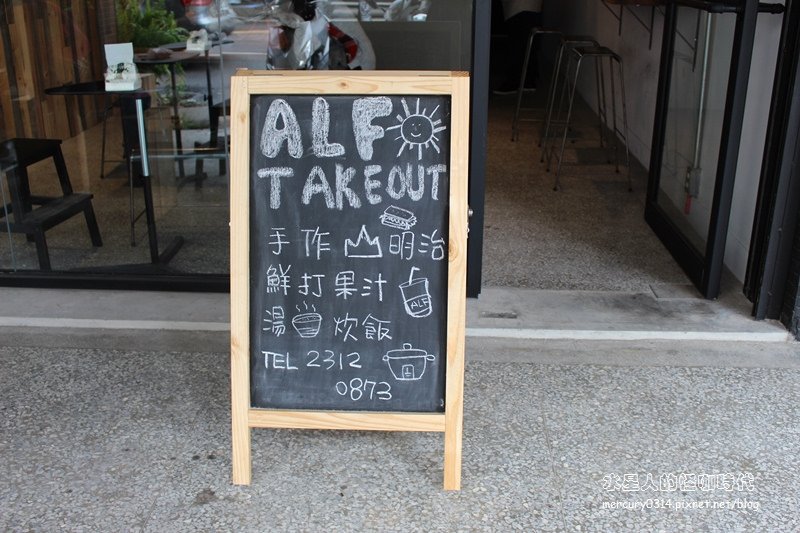 ALF
TAKEOUT
手作 明治
鮮打果汁
ALF
湯 炊飯
TEL 2312
0873
水星人的怪咖時代
mercury0314.pixnet.net/blog